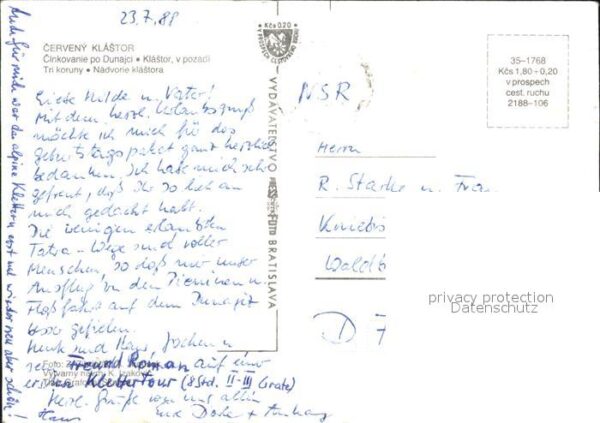 23.7.88
ČERVENÝ KLÁŠTOR
Člnkovanie po Dunajci • Kláštor, v pozadí
Tri koruny • Nádvorie kláštora
Kčs 0,20
VYDAVATEĽSTVO
FOTO BRATISLAVA
35–1768
Kčs 1,80 + 0,20
v prospech
cest. ruchu
2188–106
NSR
Herrn
R. Starke u. Frau
Kniebis
Waldb
D 7
privacy protection
Datenschutz
Liebe Hilde u. Vater!
Mit dem herzl. Urlaubsgruß
möchte ich mich für das
Geburtstagspaket ganz herzlich
bedanken. Ich habe mich sehr
gefreut, daß Ihr so lieb an
mich gedacht habt.
Die wenigen erlaubten
Tatra-Wege sind voller
Menschen, so daß mir unser
Ausflug in den Pieninen u.
Floßfahrt auf dem Dunajec
besser gefielen.
Heute sind Hans, Jochen u.
sein Freund Roman auf einer
Klettertour (8 Std. II–III Grate)
Herzl. Grüße von uns allen
Eure Dorle +
Hans
Auch für mich war das alpine Klettern erst mal wieder neu aber schön!
Foto: